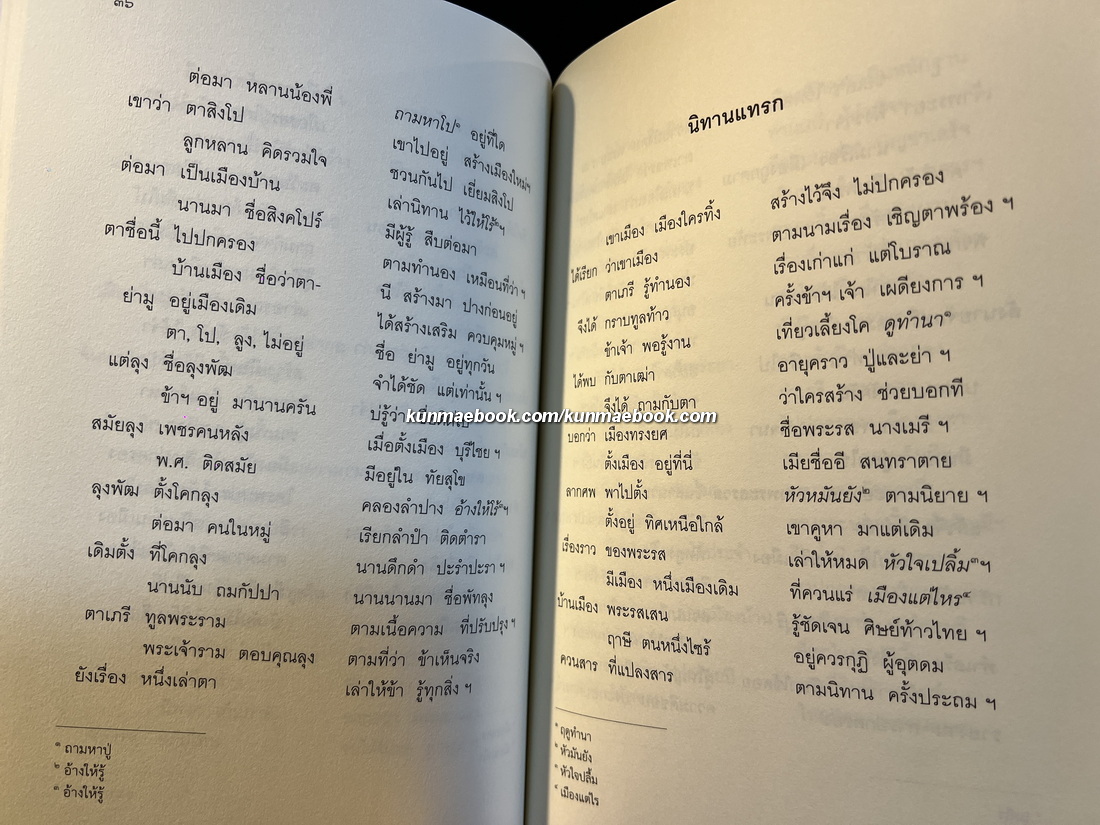 ๓๖
ต่อมา หลานน้องพี่ ถามหาโป๑ อยู่ที่ใด
เขาว่า ตาสิงโป เขาไปอยู่ สร้างเมืองใหม่ฯ
ลูกหลาน คิดรวมใจ ชวนกันไป เยี่ยมสิงโป
ต่อมา เป็นเมืองบ้าน เล่านิทาน ไว้ให้โร้๒ฯ
นานมา ชื่อสิงคโปร์ มีผู้รู้ สืบต่อมา
ตาชื่อนี้ ไปปกครอง ตามทำนอง เหมือนที่ว่า ฯ
บ้านเมือง ชื่อว่าตา- นี สร้างมา ปางก่อนอยู่
ย่ามู อยู่เมืองเดิม ได้สร้างเสริม ควบคุมหมู่ ฯ
ตา, โป, ลูง, ไม่อยู่ ชื่อ ย่ามู อยู่ทุกวัน
แต่ลุง ชื่อลุงพัฒ จำได้ชัด แต่เท่านั้น ฯ
ข้าฯ อยู่ มานานครัน บ่รู้ว่า
สมัยลุง เพชรคนหลัง เมื่อตั้งเมือง บุรีไชย ฯ
พ.ศ. ติดสมัย มีอยู่ใน ทัยสุโข
ลุงพัฒ ตั้งโคกลุง คลองลำปาง อ้างให้โร้๓ฯ
ต่อมา คนในหมู่ เรียกลำปำ ติดตำรา
เดิมตั้ง ที่โคกลุง นานดึกดำ ปะรำปะรา ฯ
นานนับ ถมกัปปา นานนานมา ชื่อพัทลุง
ตาเภรี ทูลพระราม ตามเนื้อความ ที่ปรับปรุง ฯ
พระเจ้าราม ตอบคุณลุง ตามที่ว่า ข้าเห็นจริง
ยังเรื่อง หนึ่งเล่าตา เล่าให้ข้า รู้ทุกสิ่ง ฯ
๑ ถามหาปู่
๒ อ้างให้รู้
๓ อ้างให้รู้
นิทานแทรก
เขาเมือง เมืองใครทิ้ง สร้างไว้จึง ไม่ปกครอง
ได้เรียก ว่าเขาเมือง ตามนามเรื่อง เชิญตาพร้อง ฯ
ตาเภรี รู้ทำนอง เรื่องเก่าแก่ แต่โบราณ
จึงได้ กราบทูลท้าว ครั้งข้าฯ เจ้า เผดียงการ ฯ
ข้าเจ้า พอรู้งาน เที่ยวเลี้ยงโค ดูทำนา๑
ได้พบ กับตาเฒ่า อายุคราว ปู่และย่า ฯ
จึงได้ ถามกับตา ว่าใครสร้าง ช่วยบอกที
บอกว่า เมืองทรงยศ ชื่อพระรส นางเมรี ฯ
ตั้งเมือง อยู่ที่นี่ เมียชื่ออี สนทราตาย
ลากศพ พาไปตั้ง หัวหมันยัง๒ ตามนิยาย ฯ
ตั้งอยู่ ทิศเหนือใกล้ เขาคูหา มาแต่เดิม
เรื่องราว ของพระรส เล่าให้หมด หัวใจเปลิ้ม๓ฯ
มีเมือง หนึ่งเมืองเดิม ที่ควนแร่ เมืองแต่ไหร๔
บ้านเมือง พระรสเสน รู้ชัดเจน ศิษย์ท้าวไทย ฯ
ฤาษี ตนหนึ่งไซร้ อยู่ควรกุฏิ ผู้อุตดม
ควนสาร ที่แปลงสาร ตามนิทาน ครั้งประถม ฯ
๑ ฤดูทำนา
๒ หัวมันยัง
๓ หัวใจปลื้ม
๔ เมืองแต่ไร
kunmaebook.com/kunmaebook.com